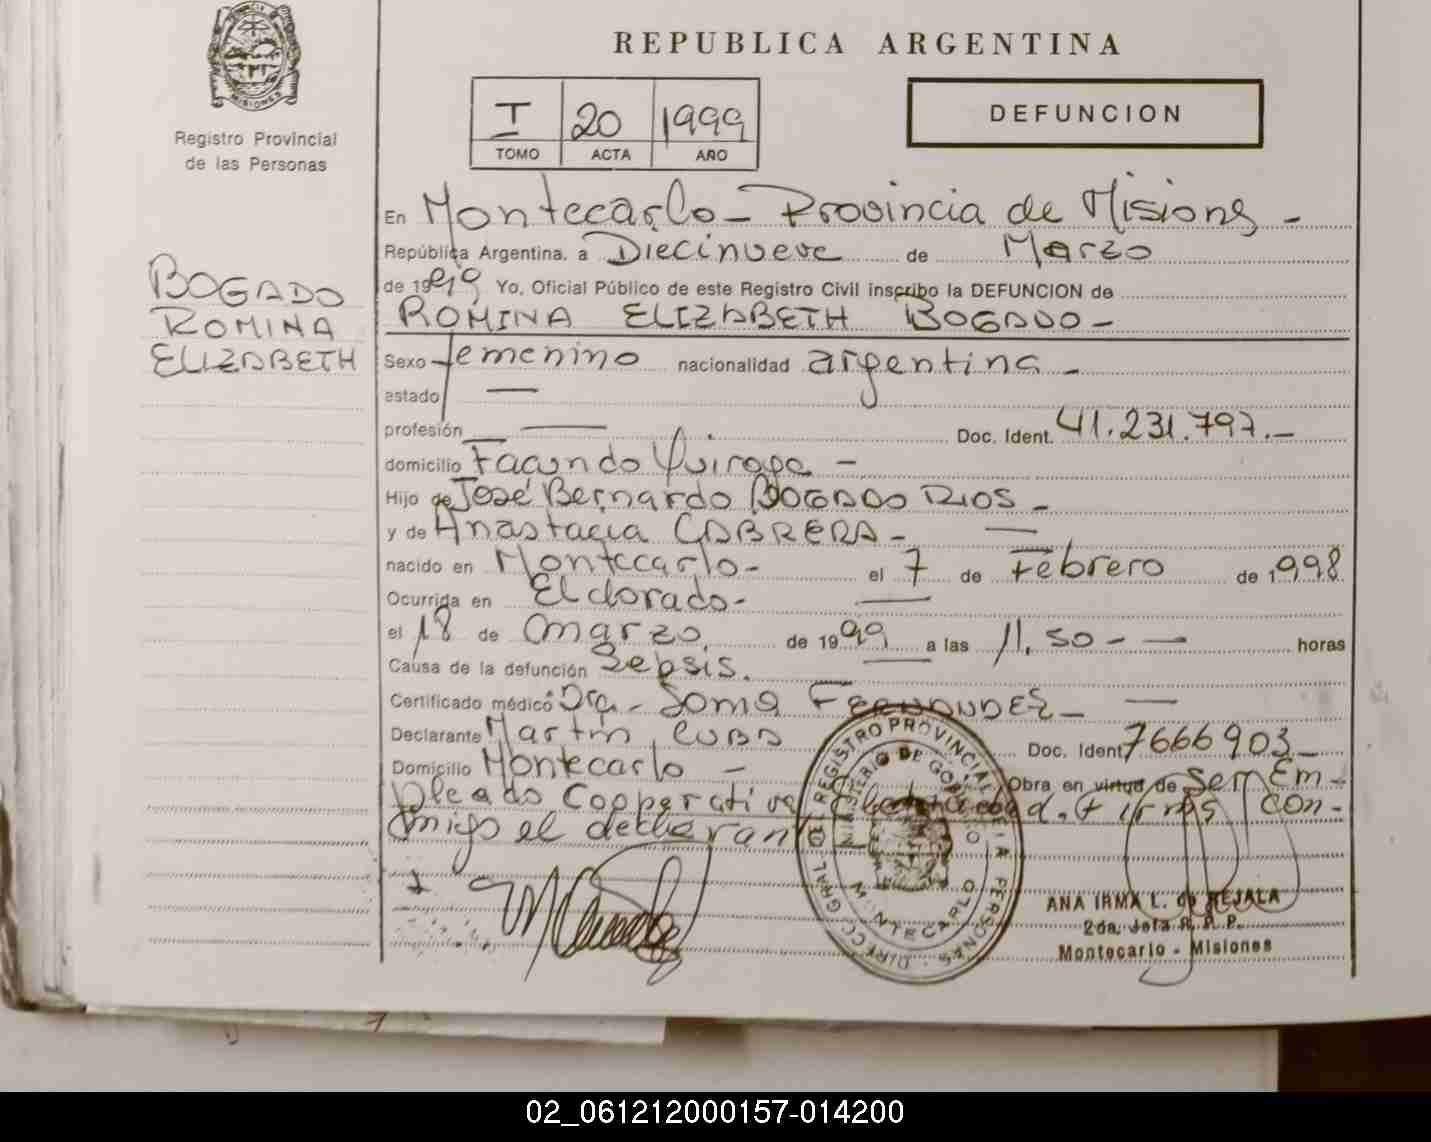 REPUBLICA ARGENTINA
MISIONES
Registro Provincial
de las Personas
I 20 1999
TOMO ACTA AÑO
DEFUNCION
BOGADO
ROMINA
ELIZABETH
En Montecarlo - Provincia de Misiones -
República Argentina, a Diecinueve de Marzo
de 1999 Yo, Oficial Público de este Registro Civil inscribo la DEFUNCION de
ROMINA ELIZABETH BOGADO -
Sexo femenino nacionalidad argentina -
estado —
profesión — Doc. Ident. 41.231.797.-
domicilio Facundo Quiroga -
Hijo de José Bernardo BOGADO RIOS -
y de Anastacia CABRERA - —
nacido en Montecarlo - el 7 de Febrero de 1998
Ocurrida en Eldorado - —
el 18 de marzo de 1999 a las 11,50 - — horas
Causa de la defunción Sepsis.
Certificado médico Dra. Sonia FERNANDEZ -
Declarante Martin CUBA Doc. Ident 7666903 -
Domicilio Montecarlo - Obra en virtud de ser Em-
pleado Cooperativa Electricidad. Firma con-
migo el declarante
DIRECC. GRAL. DEL REGISTRO PROVINCIAL DE LA PERSONAS
MINISTERIO DE GOBIERNO
MONTECARLO
ANA IRMA L. de REJALA
2da. Jefa R. P. P.
Montecarlo - Misiones
02_061212000157-014200